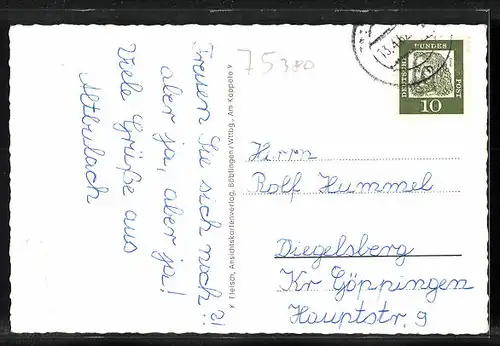 Freuen Sie sich noch?!
aber ja, aber ja!
Viele Grüße aus
Altbulach
75380
v Fleisch, Ansichtskartenverlag, Böblingen/Wttbg., Am Käppele v
DEUTSCHE
BUNDES
POST
10
Herrn
Rolf Hummel
Diegelsberg
Kr Göppingen
Hauptstr. 9